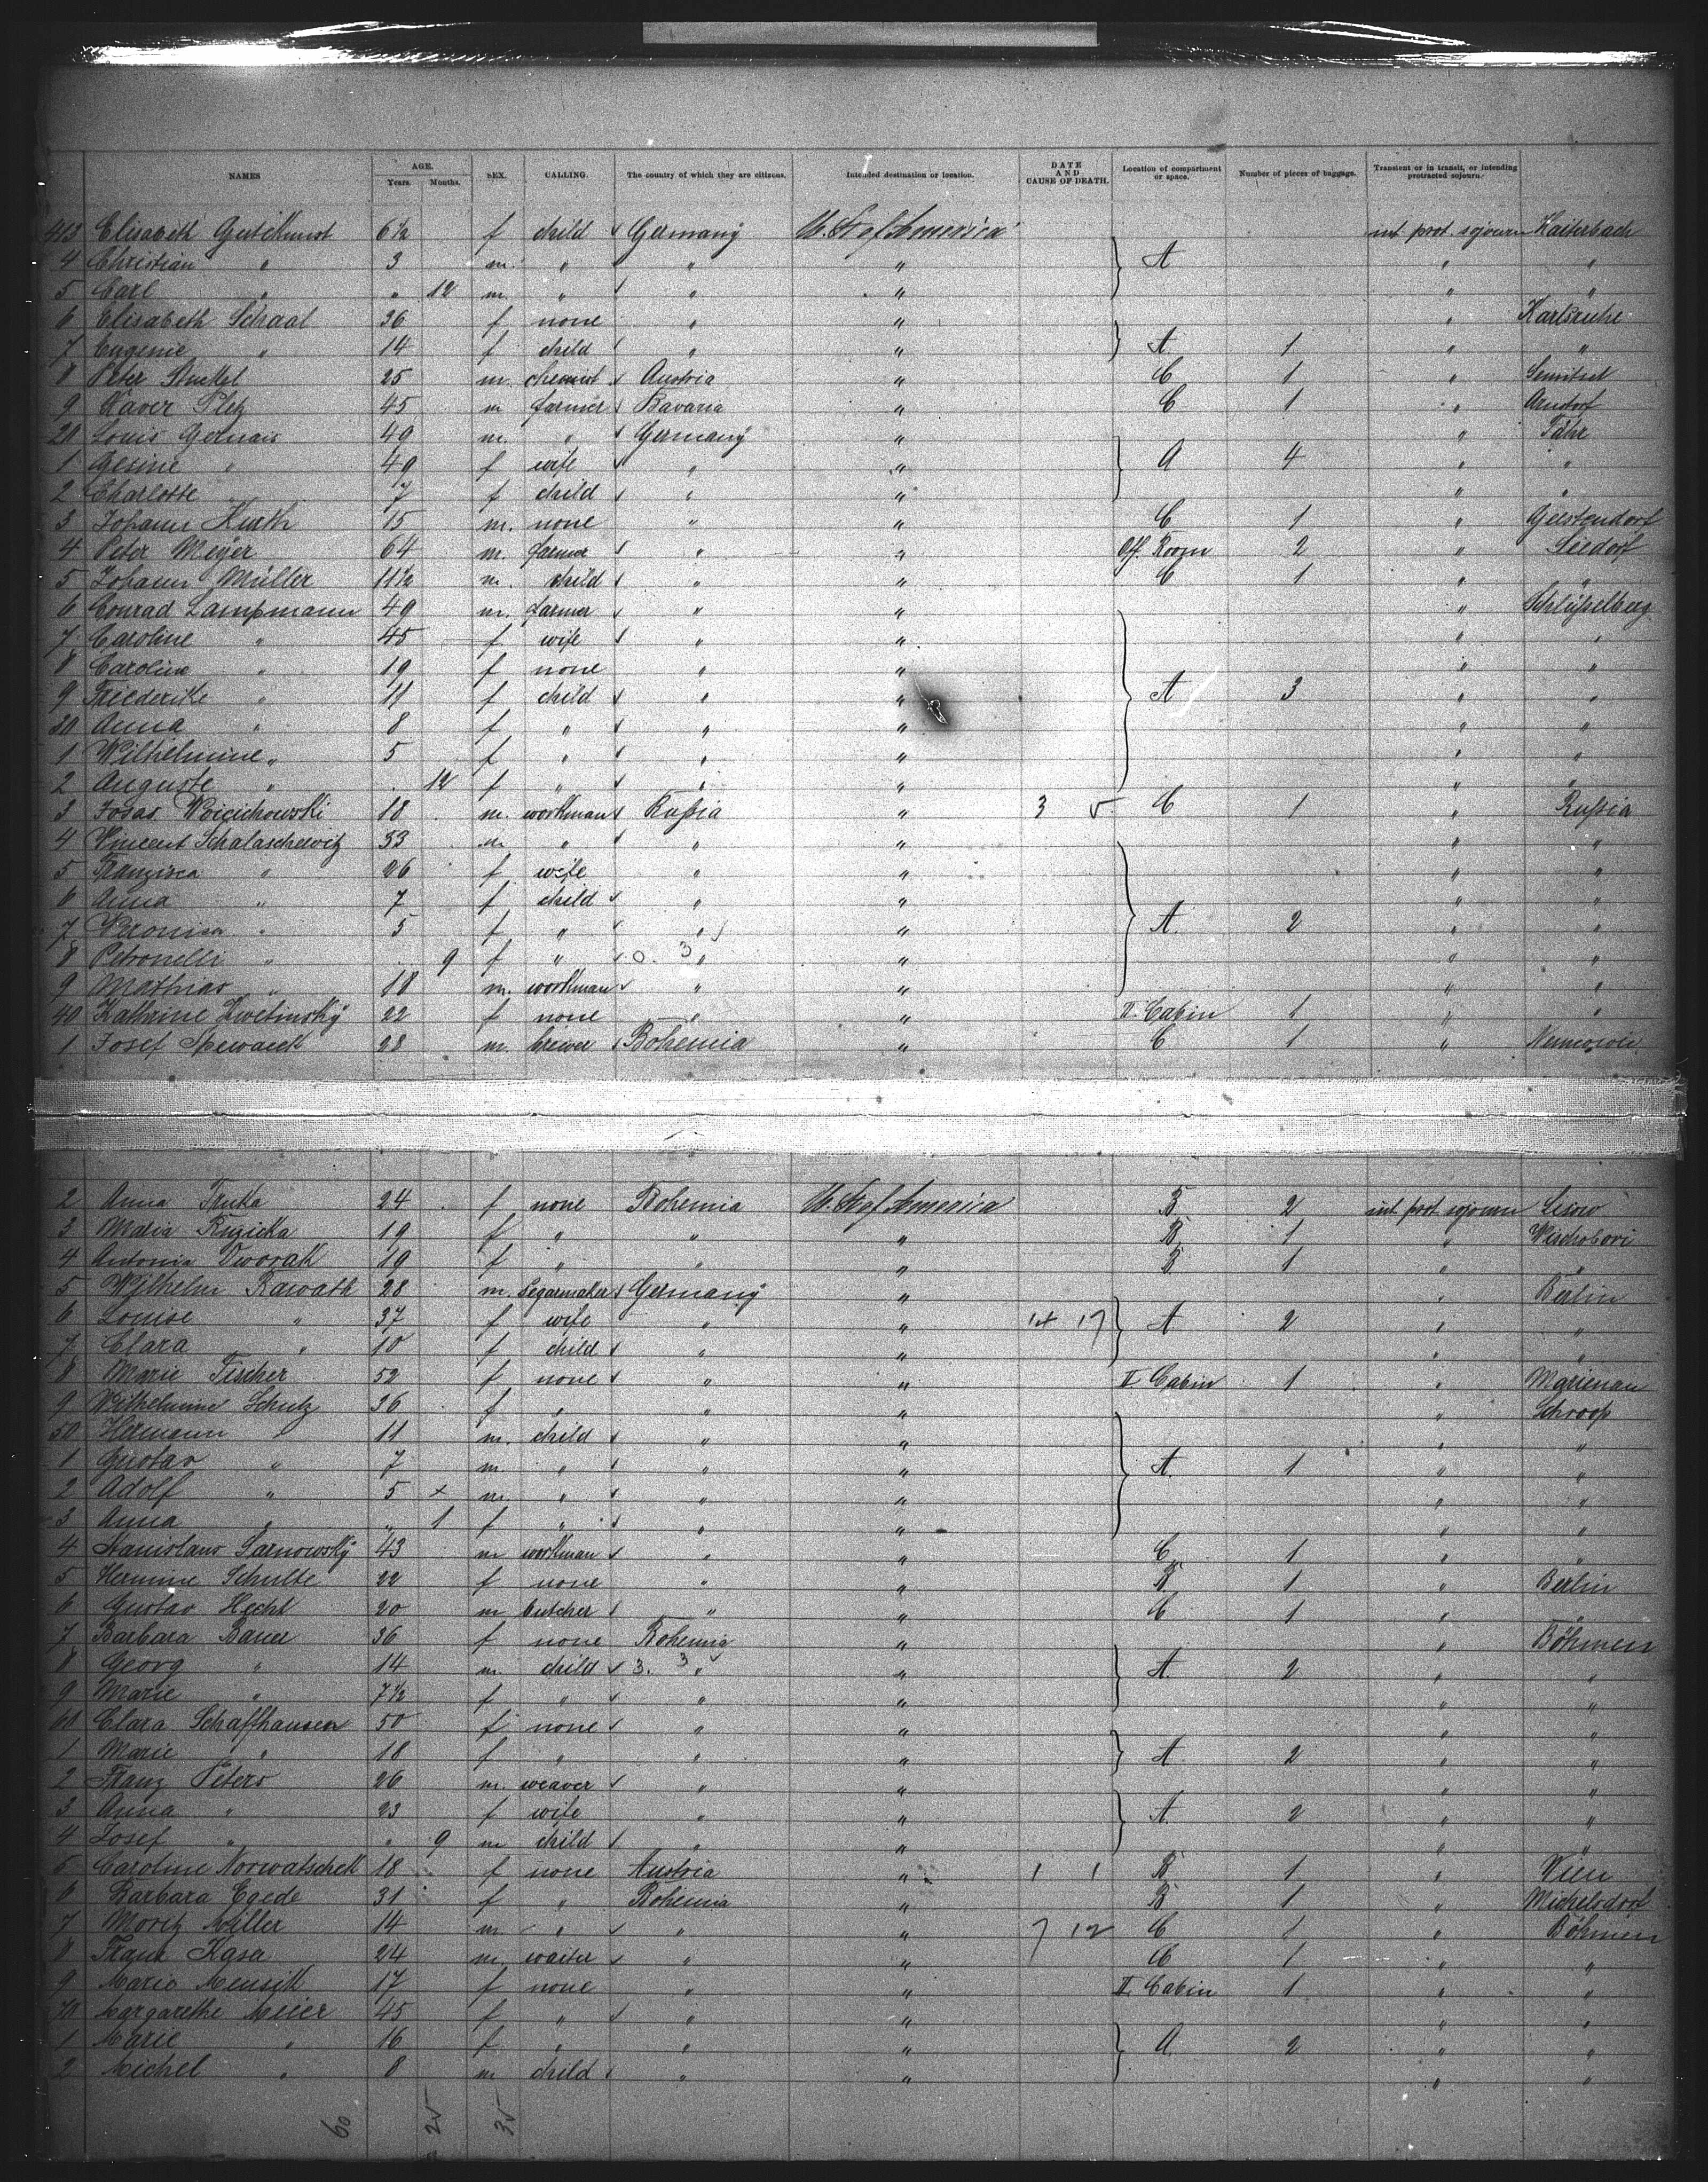 NAMES AGE. Years. Months. SEX. CALLING. The country of which they are citizens. Intended destination or location. DATE AND CAUSE OF DEATH. Location of compartment or space. Number of pieces of baggage. Transient or in transit, or intending protracted sojourn.
413 Elisabeth 6½ f child Germany U. St of America int prot. sojourn Kaiserbach
4 Christian " 3 m. " " " A " "
5 Carl " " 12 m " " " " "
6 Elisabeth Schaal 36 f none " " " Karlsruhe
7 Eugenie " 14 f child " " A 1 " "
8 Peter 25 m. chemist Austria " C 1 "
9 Xaver Pletz 45 m farmer Bavaria " C 1 " Arndorf
20 Louis Gernais 49 m. " Germany " " Fähr
1 Gesine " 49 f wife " " A 4 " "
2 Charlotte " 7 f child " " " "
3 Johann Kurth 15 m. none " " C 1 " Geestendorf
4 Peter Meyer 64 m. farmer " " Off. Room 2 " Seedorf
5 Johann Müller 11½ m. child " " C 1 " "
6 Conrad Lampmann 49 m. farmer " " "
7 Caroline " 45 f wife " " " "
8 Caroline " 19 f none " " " "
9 Friederike " 11 f child " " A 3 " "
30 Anna " 8 f " " " " "
1 Wilhelmine " 5 f " " " " "
2 Auguste " 12 f " " " " "
3 18 m. workman Rußia " 3 5 C 1 " Rußia
4 Vincent Schalaschewitz 33 m " " " " "
5 Franzisca " 26 f wife " " " "
6 Anna " 7 f child " " " "
7 Veronica " 5 f " " " A. 2 " "
8 Petronelli " 9 f " 0. 3 " " " "
9 Mathias " 18 m. workman " " " "
40 Kathrine Zwetinsky 22 f none " " II. Cabin 1 " "
1 Josef Spewacek 28 m. brewer Bohemia " C 1 "
2 Anna Truka 24 f none Bohemia U. St of America B 2 int prot sojourn Lisow
3 Maria Ruzicka 19 f " " " B 1 "
4 Antonia Dworak 19 f " " " B 1 " "
5 Wilhelm Rawath 28 m. Segarmaker Germany " " Berlin
6 Louise " 37 f wife " " 14 17 A 2 " "
7 Clara " 10 f child " " " "
8 Marie Fischer 52 f none " " II Cabin 1 " Marienau
9 Wilhelmine Schulz 36 f " " " " Schroop
50 Hermann " 11 m. child " " " "
1 Gustav " 7 m " " " A. 1 " "
2 Adolf " 5 x m. " " " " "
3 Anna " " 1 f " " " " "
4 Stanislaus Sarnowsky 43 m workman " " C 1 " "
5 Hermine Schulte 22 f none " " B 1 " Berlin
6 Gustav Hecht 20 m butcher " " C 1 " "
7 Barbara Bauer 36 f none Bohemia " " Böhmen
8 Georg " 14 m. child 3. 3 " " A. 2 " "
9 Marie " 7½ f " " " " "
60 Clara Schafhausen 50 f none " " " "
1 Marie " 18 f " " " A. 2 " "
2 Franz Peters 26 m. weaver " " " "
3 Anna " 23 f wife " " A. 2 " "
4 Josef " " 9 m child " " " "
5 Caroline Norwatschek 18 f none Austria " 1 1 B 1 " Wien
6 Barbara Egede 31 f " Bohemia " B 1 " Michelsdorf
7 Moritz Miller 14 m. " " " 7 12 C 1 " Böhmen
8 Franz Kasa 24 m. waiter " " C 1 " "
9 Marie Mensik 17 f none " " II Cabin 1 " "
70 Margarethe Meier 45 f " " " " "
1 Marie " 16 f " " " A 2 " "
2 Michel " 8 m child " " " "
60 25 35